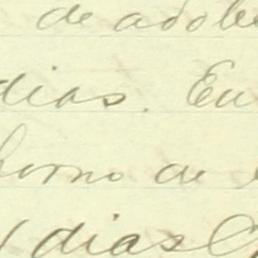 de adobe
dias. En
horno de
dias